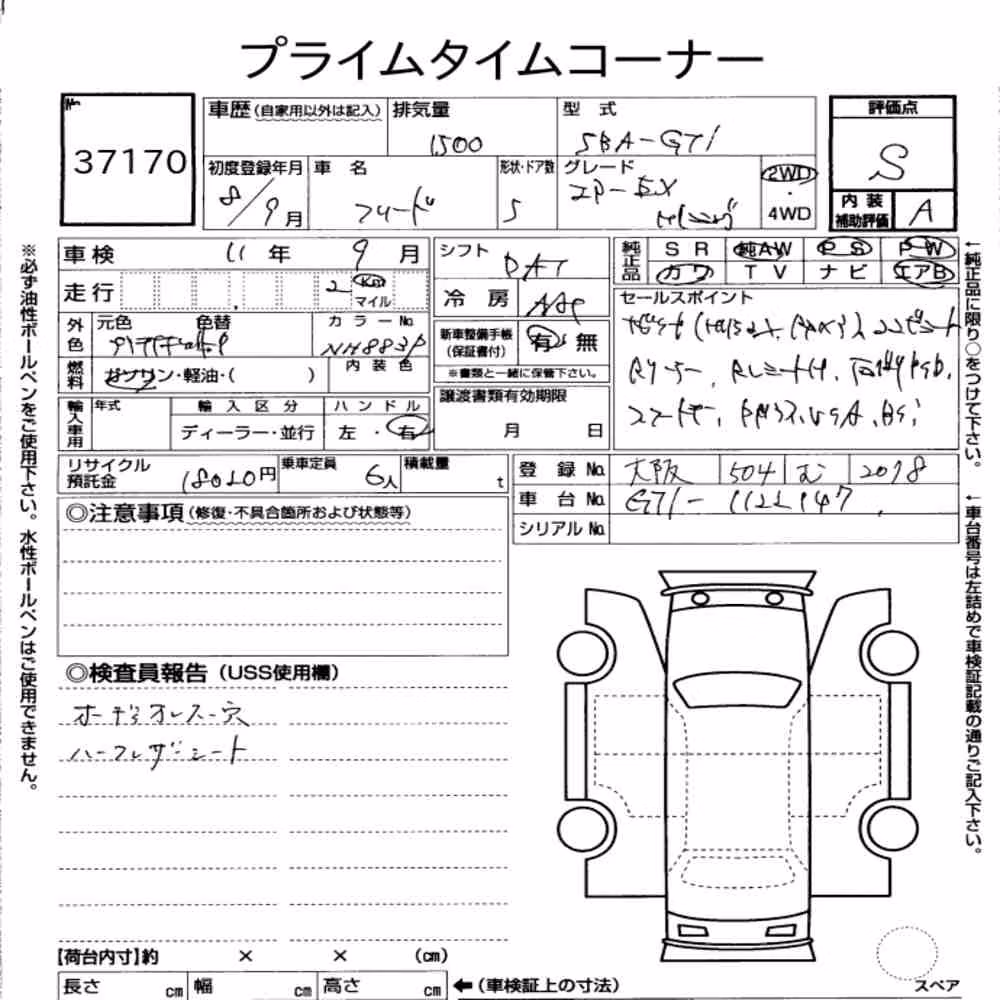 プライムタイムコーナー
No. 37170
車歴 (自家用以外は記入) 排気量 1500 型式 SBA-GT1 評価点 S
初度登録年月 8/9月 車名 フリード 形状・ドア数 5 グレード 2WD・4WD 内装補助評価 A
車検 11年 9月 シフト DAT 純正品 SR 純AW PS PW
カワ TV ナビ エアB
走行 2 Km マイル 冷房 セールスポイント
外色 元色 色替 カラーNo. NH883P 新車整備手帳 (保証書付) 有 無
※書類と一緒に保管下さい。
燃料 ガソリン・軽油・( ) 内装色
輸入車用 年式 輸入区分 ディーラー・並行 ハンドル 左・右 譲渡書類有効期限 月 日
リサイクル預託金 18020円 乗車定員 6人 積載量 t 登録No. 大阪 504 む 2078
車台No. GT1-1122147
シリアルNo.
◎注意事項 (修復・不具合箇所および状態等)
◎検査員報告 (USS使用欄)
オーディオレス・穴
ハーフレザーシート
【荷台内寸】約 × × (cm)
長さ cm 幅 cm 高さ cm ←(車検証上の寸法)
スペア
※必ず油性ボールペンをご使用下さい。水性ボールペンはご使用できません。
←純正品に限り○をつけて下さい。
←車台番号は左詰めで車検証記載の通りご記入下さい。